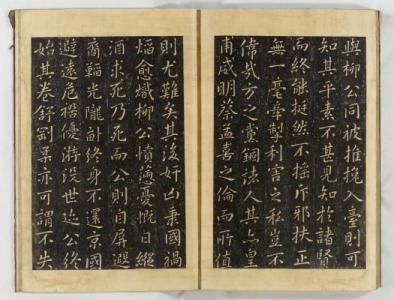 與柳公同被推挽入臺則可
知其平素不甚見知於諸賢
而終能挺然不搖斥邪扶正
無一毫牽掣利害之私豈不
偉哉方之黨錮法人其亦皇
甫咸明蔡孟喜之倫而所值
則尤難矣其後奸山秉國禍
焰愈熾柳公憤濁憂慨日縱
酒求死乃死而公則自屏遐
裔韜光隴畝終身不還京國
避遠危機優游沒世迹公終
始其卷舒剛柔亦可謂不失